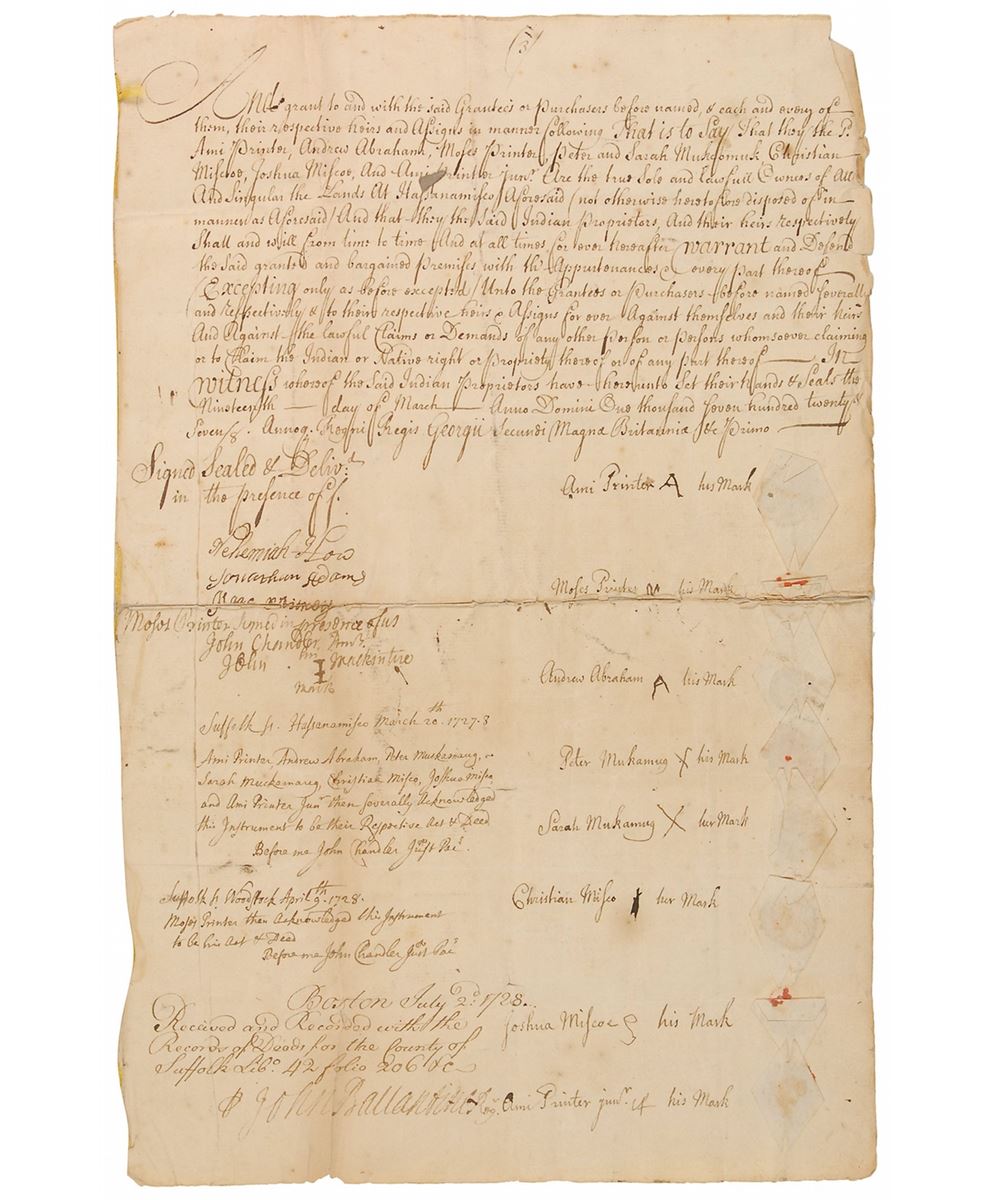 (3)
And grant to and with the said Grantees or Purchasers before named, & each and every of
them, their respective heirs and Assigns in manner following That is to Say That they the Sd
Ami Printer, Andrew Abraham, Moses Printer, Peter and Sarah Muckamuck, Christian
Miscoe, Joshua Miscoe, And Ami Printer junr. Are the true Sole and lawfull Owners of All
And Singular the Lands At Hassanamisco Aforesaid (not otherwise heretofore disposed of in
manner as Aforesaid) And that they the Said Indian Proprietors, And their heirs respectively
Shall and will from time to time And at all times for ever hereafter warrant and Defend
the Said granted and bargained Premises with the Appurtenances & every Part thereof
(Excepting only as before excepted) Unto the Grantees or Purchasers before named severally
and respectively & to their respective heirs & Assigns for ever Against themselves and their heirs
And Against the lawful Claims or Demands of any other Person or Persons whomsoever claiming
or to Claim the Indian or Native right or Propriety thereof or of any Part thereof — In
witness whereof the Said Indian Proprietors have hereunto Set their hands & Seals the
Nineteenth — day of March — Anno Domini One thousand Seven hundred twenty &
Seven/8. Annoq. Regni Regis Georgii Secundi Magnæ Britanniæ &c Primo —
Signed Sealed & Delivd.
in the presence of
Ami Printer A his Mark
Nehemiah How
Jonathan Adams
Moses Printer his Mark
Isaac
Moses Printer signed in presence of us
John Chandler Junr.
John his I Mackintire
Mark
Andrew Abraham A his Mark
Suffolk ss. Hassanamisco March 20th. 1727.8
Ami Printer Andrew Abraham, Peter Muckamaug,
Sarah Muckamaug, Christian Misco, Joshua Misco
and Ami Printer Junr then Severally Acknowledged
this Instrument to be their Respective Act & Deed
Before me John Chandler Just Pac.
Peter Mukamug X his Mark
Sarah Mukamug X her Mark
Suffolk ss Woodstock April 9th. 1728.
Moses Printer then Acknowledged this Instrument
to be his Act & Deed
Before me John Chandler Just Pac
Christian Misco her Mark
Boston July 2d. 1728.
Received and Recorded with the
Records of Deeds for the County of
Suffolk Libo. 42 folio 206 &c
John Ballantine Regr.
Joshua Miscoe his Mark
Ami Printer junr. his Mark